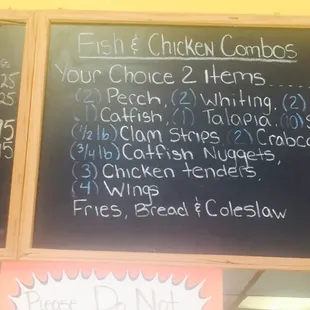 25
25
Fish & Chicken Combos
Your Choice 2 Items
(2) Perch, (2) Whiting, (2)
1 Catfish, (1) Talapia, (10) S
(1/2 lb) Clam Strips, (2) Crabca
(3/4 lb) Catfish Nuggets,
(3) Chicken tenders,
(4) Wings
Fries, Bread & Coleslaw
Please Do Not